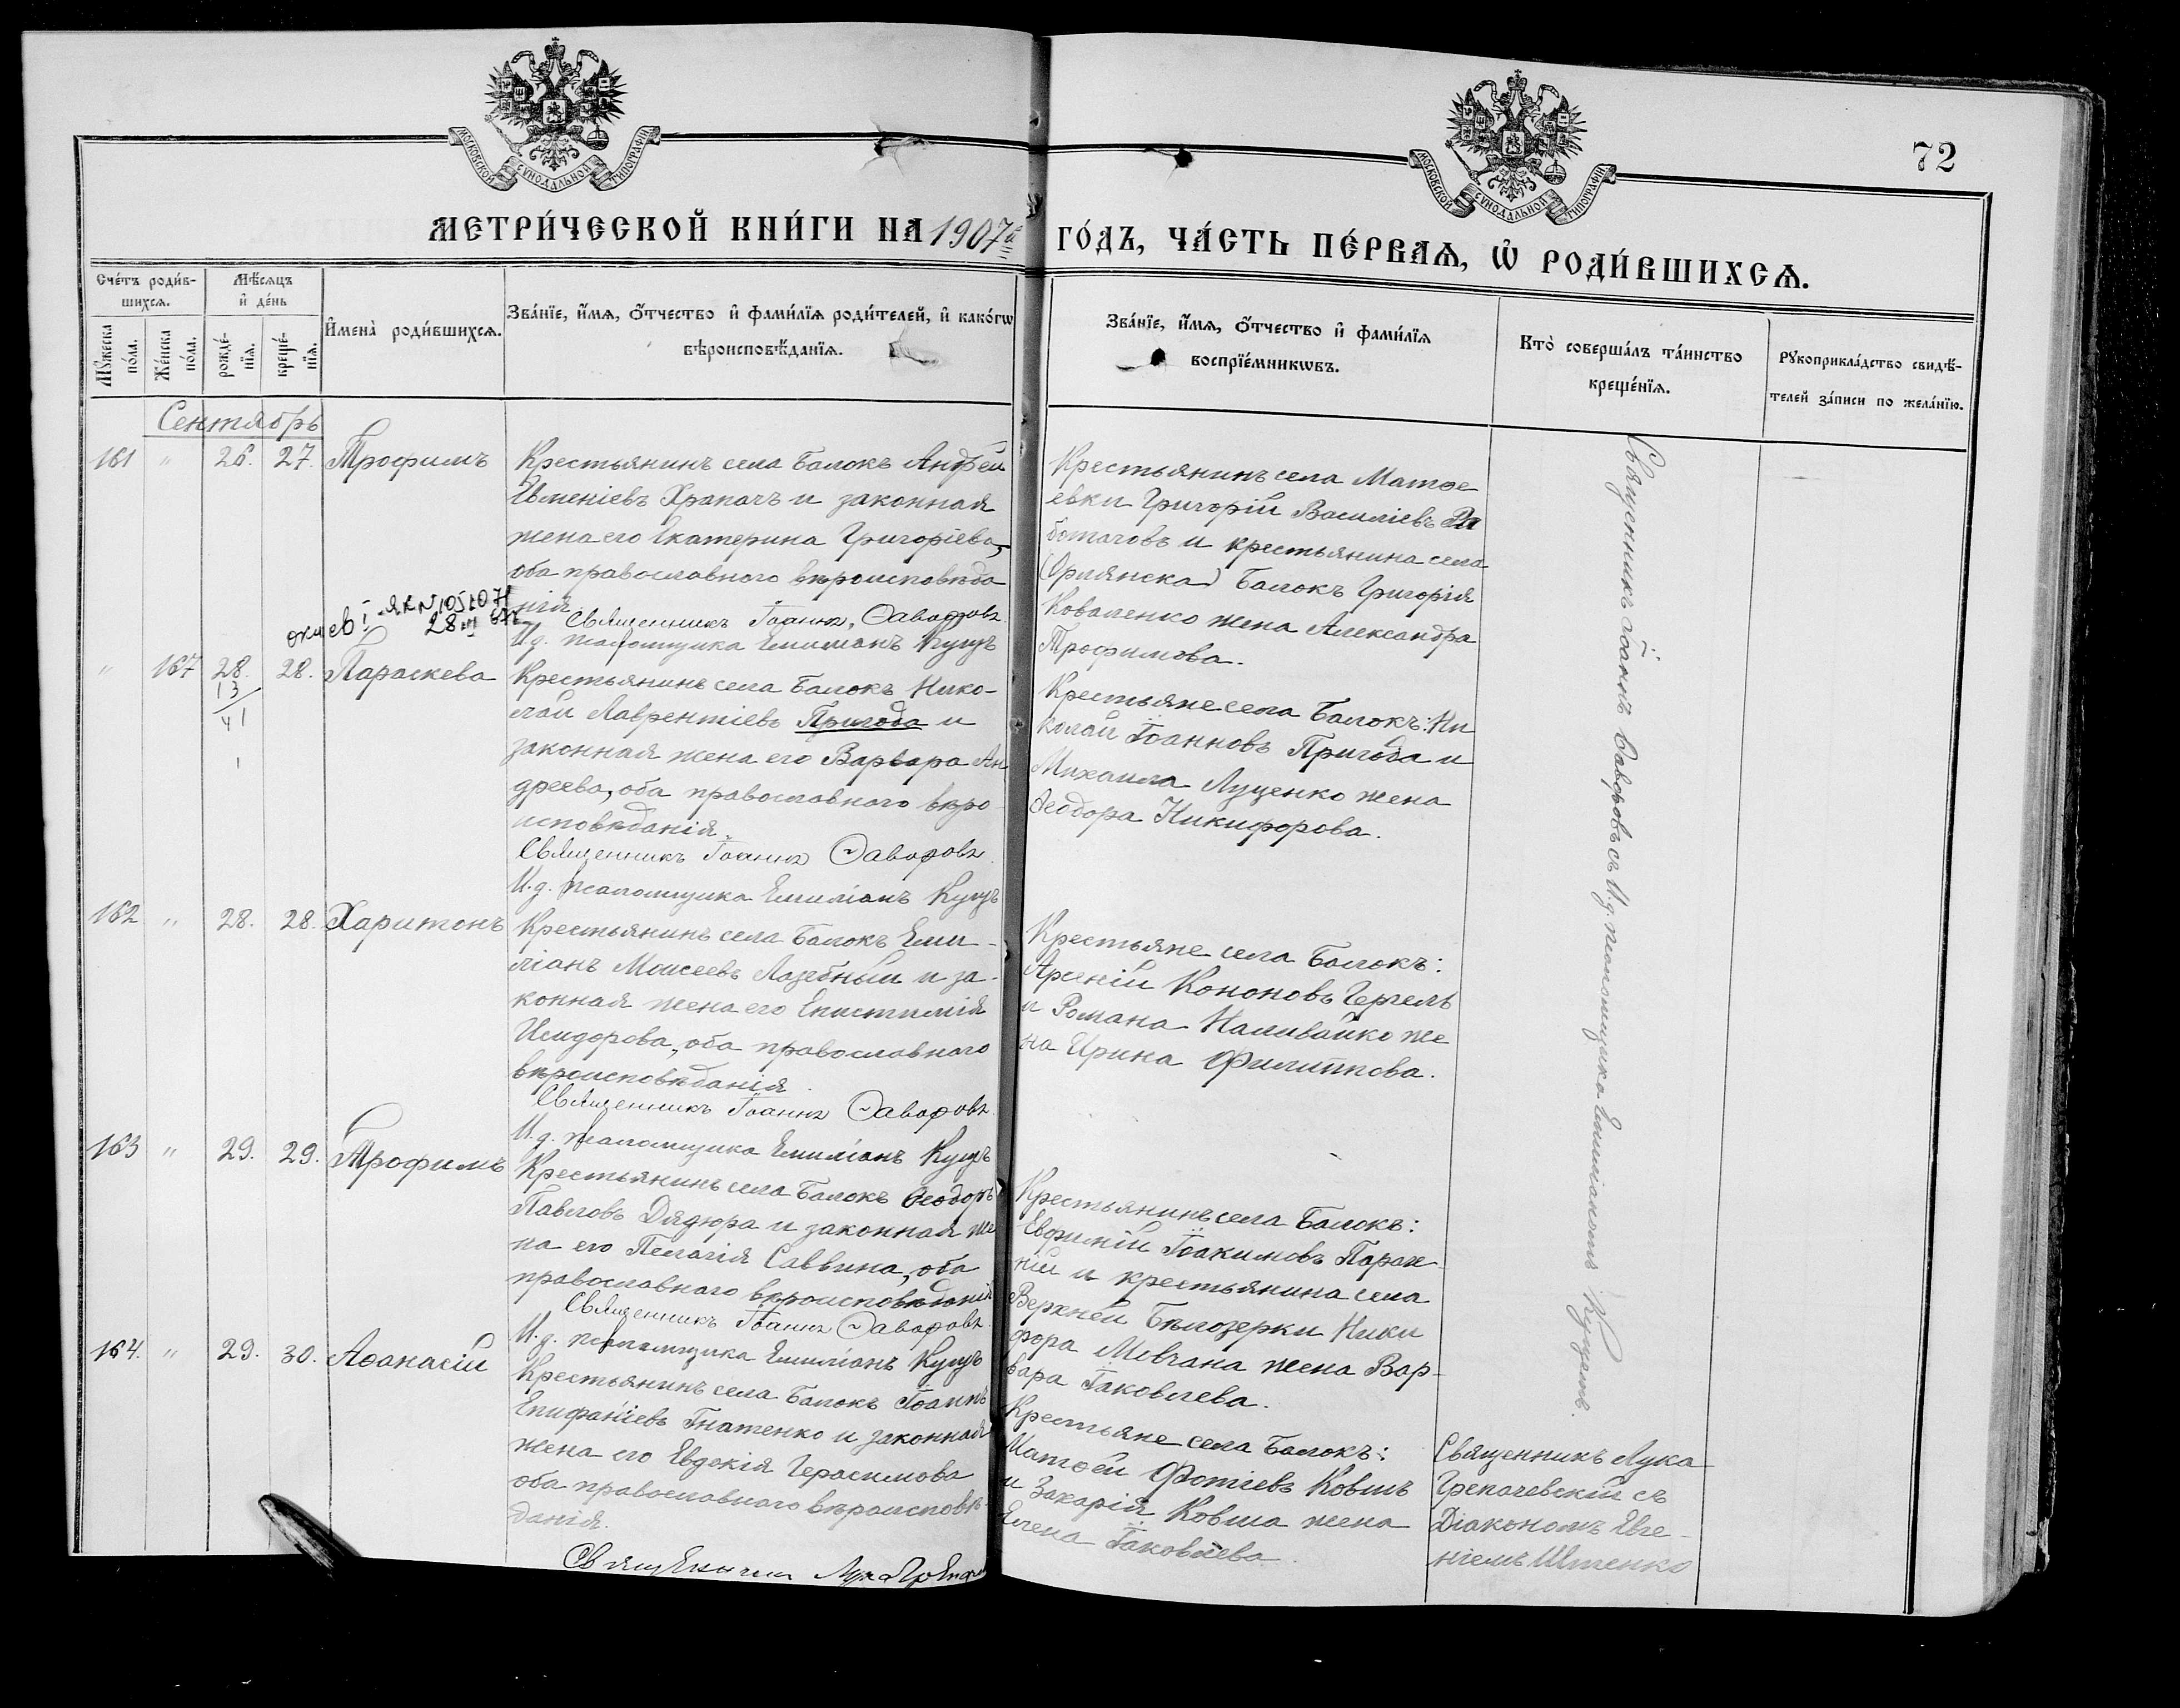 МОСКОВСКОЙ СѴНОДАЛЬНОЙ ТИПОГРАФІИ
МОСКОВСКОЙ СѴНОДАЛЬНОЙ ТИПОГРАФІИ
72
МЕТРИ́ЧЕСКОЙ КНИ́ГИ НА 1907й
ГО́ДЪ, ЧА́СТЬ ПЕ́РВАѦ, Ѡ҆ РОДИ́ВШИХСѦ.
Сче́тъ роди́в-
шихсѧ.
Мѣ́сѧцъ
и҆ де́нь
Мꙋ́жеска по́ла.
Же́нска по́ла.
рожде́-
нїѧ.
креще́-
нїѧ.
И҆мена̀ роди́вшихсѧ.
Зва́нїе, и҆́мѧ, ѻ҆́тчество и҆ фами́лїѧ роди́телей, и҆ како́гѡ
вѣроисповѣ́данїѧ.
Зва́нїе, и҆́мѧ, ѻ҆́тчество и҆ фами́лїѧ
воспрїе́мникѡвъ.
Кто̀ соверша́лъ та́инство
креще́нїѧ.
Рꙋкоприкла́дство свидѣ́-
телей за́писи по жела́нїю.
Сентябрь
161 " 26. 27. Трофимъ
Крестьянинъ села Балокъ Андрей
Евменіевъ Храпачъ и законная
жена его Екатерина Григоріева,
оба православного вѣроисповѣда
нія
Священникъ Іоаннъ Заворовъ
И.д. псаломщика Емиліанъ Куцъ
Крестьянинъ села Матѳе
евки Григорій Василіевъ Ра
ботаговъ и крестьянина села
(Орлянска) Балокъ Григорія
Коваленко жена Александра
Трофимова.
Священникъ Іоаннъ Заворовъ съ И.д. псаломщика Емиліаномъ Куцомъ.
28
" 167 28. 28. Параскева
13
41
1
Крестьянинъ села Балокъ Нико-
лай Лаврентіевъ Пригода и
законная жена его Варвара Ан
дреева, оба православного вѣро
исповѣданія.
Священникъ Іоаннъ Заворовъ
И.д. псаломщика Емиліанъ Куцъ
Крестьяне села Балокъ: Ни
колай Іоанновъ Пригода и
Михаила Луценко жена
Ѳеодора Никифорова.
162 " 28. 28. Харитонъ
Крестьянинъ села Балокъ Еми-
ліанъ Моисеевъ Лазебный и за-
конная жена его Епистимія
Исидорова, оба православного
вѣроисповѣданія.
Священникъ Іоаннъ Заворовъ
И.д. псаломщика Емиліанъ Куцъ
Крестьяне села Балокъ:
Арсеній Кононовъ Гергель
и Романа Наливайко же
на Ирина Филиппова.
163 " 29. 29. Трофимъ
Крестьянинъ села Балокъ Ѳеодоръ
Павловъ Дядюра и законная же
на его Пелагія Саввина, оба
православного вѣроисповѣданія
Священникъ Іоаннъ Заворовъ
И.д. псаломщика Емиліанъ Куцъ
Крестьянинъ села Балокъ:
Евфимій Іоакимовъ
и крестьянина села
Верхней Бѣлозерки Ники
фора жена Вар-
вара Іаковлева.
164. " 29. 30. Аѳанасій
Крестьянинъ села Балокъ Іоаннъ
Епифаніевъ Гнатенко и законная
жена его Евдокія Герасимова
оба православного вѣроисповѣ-
данія.
Священникъ Лука
Крестьяне села Балокъ:
Матѳей Фотіевъ Ковшъ
и Захарія Ковша жена
Елена Іаковлева.
Священникъ Лука
съ
Діакономъ Евге-
ніемъ